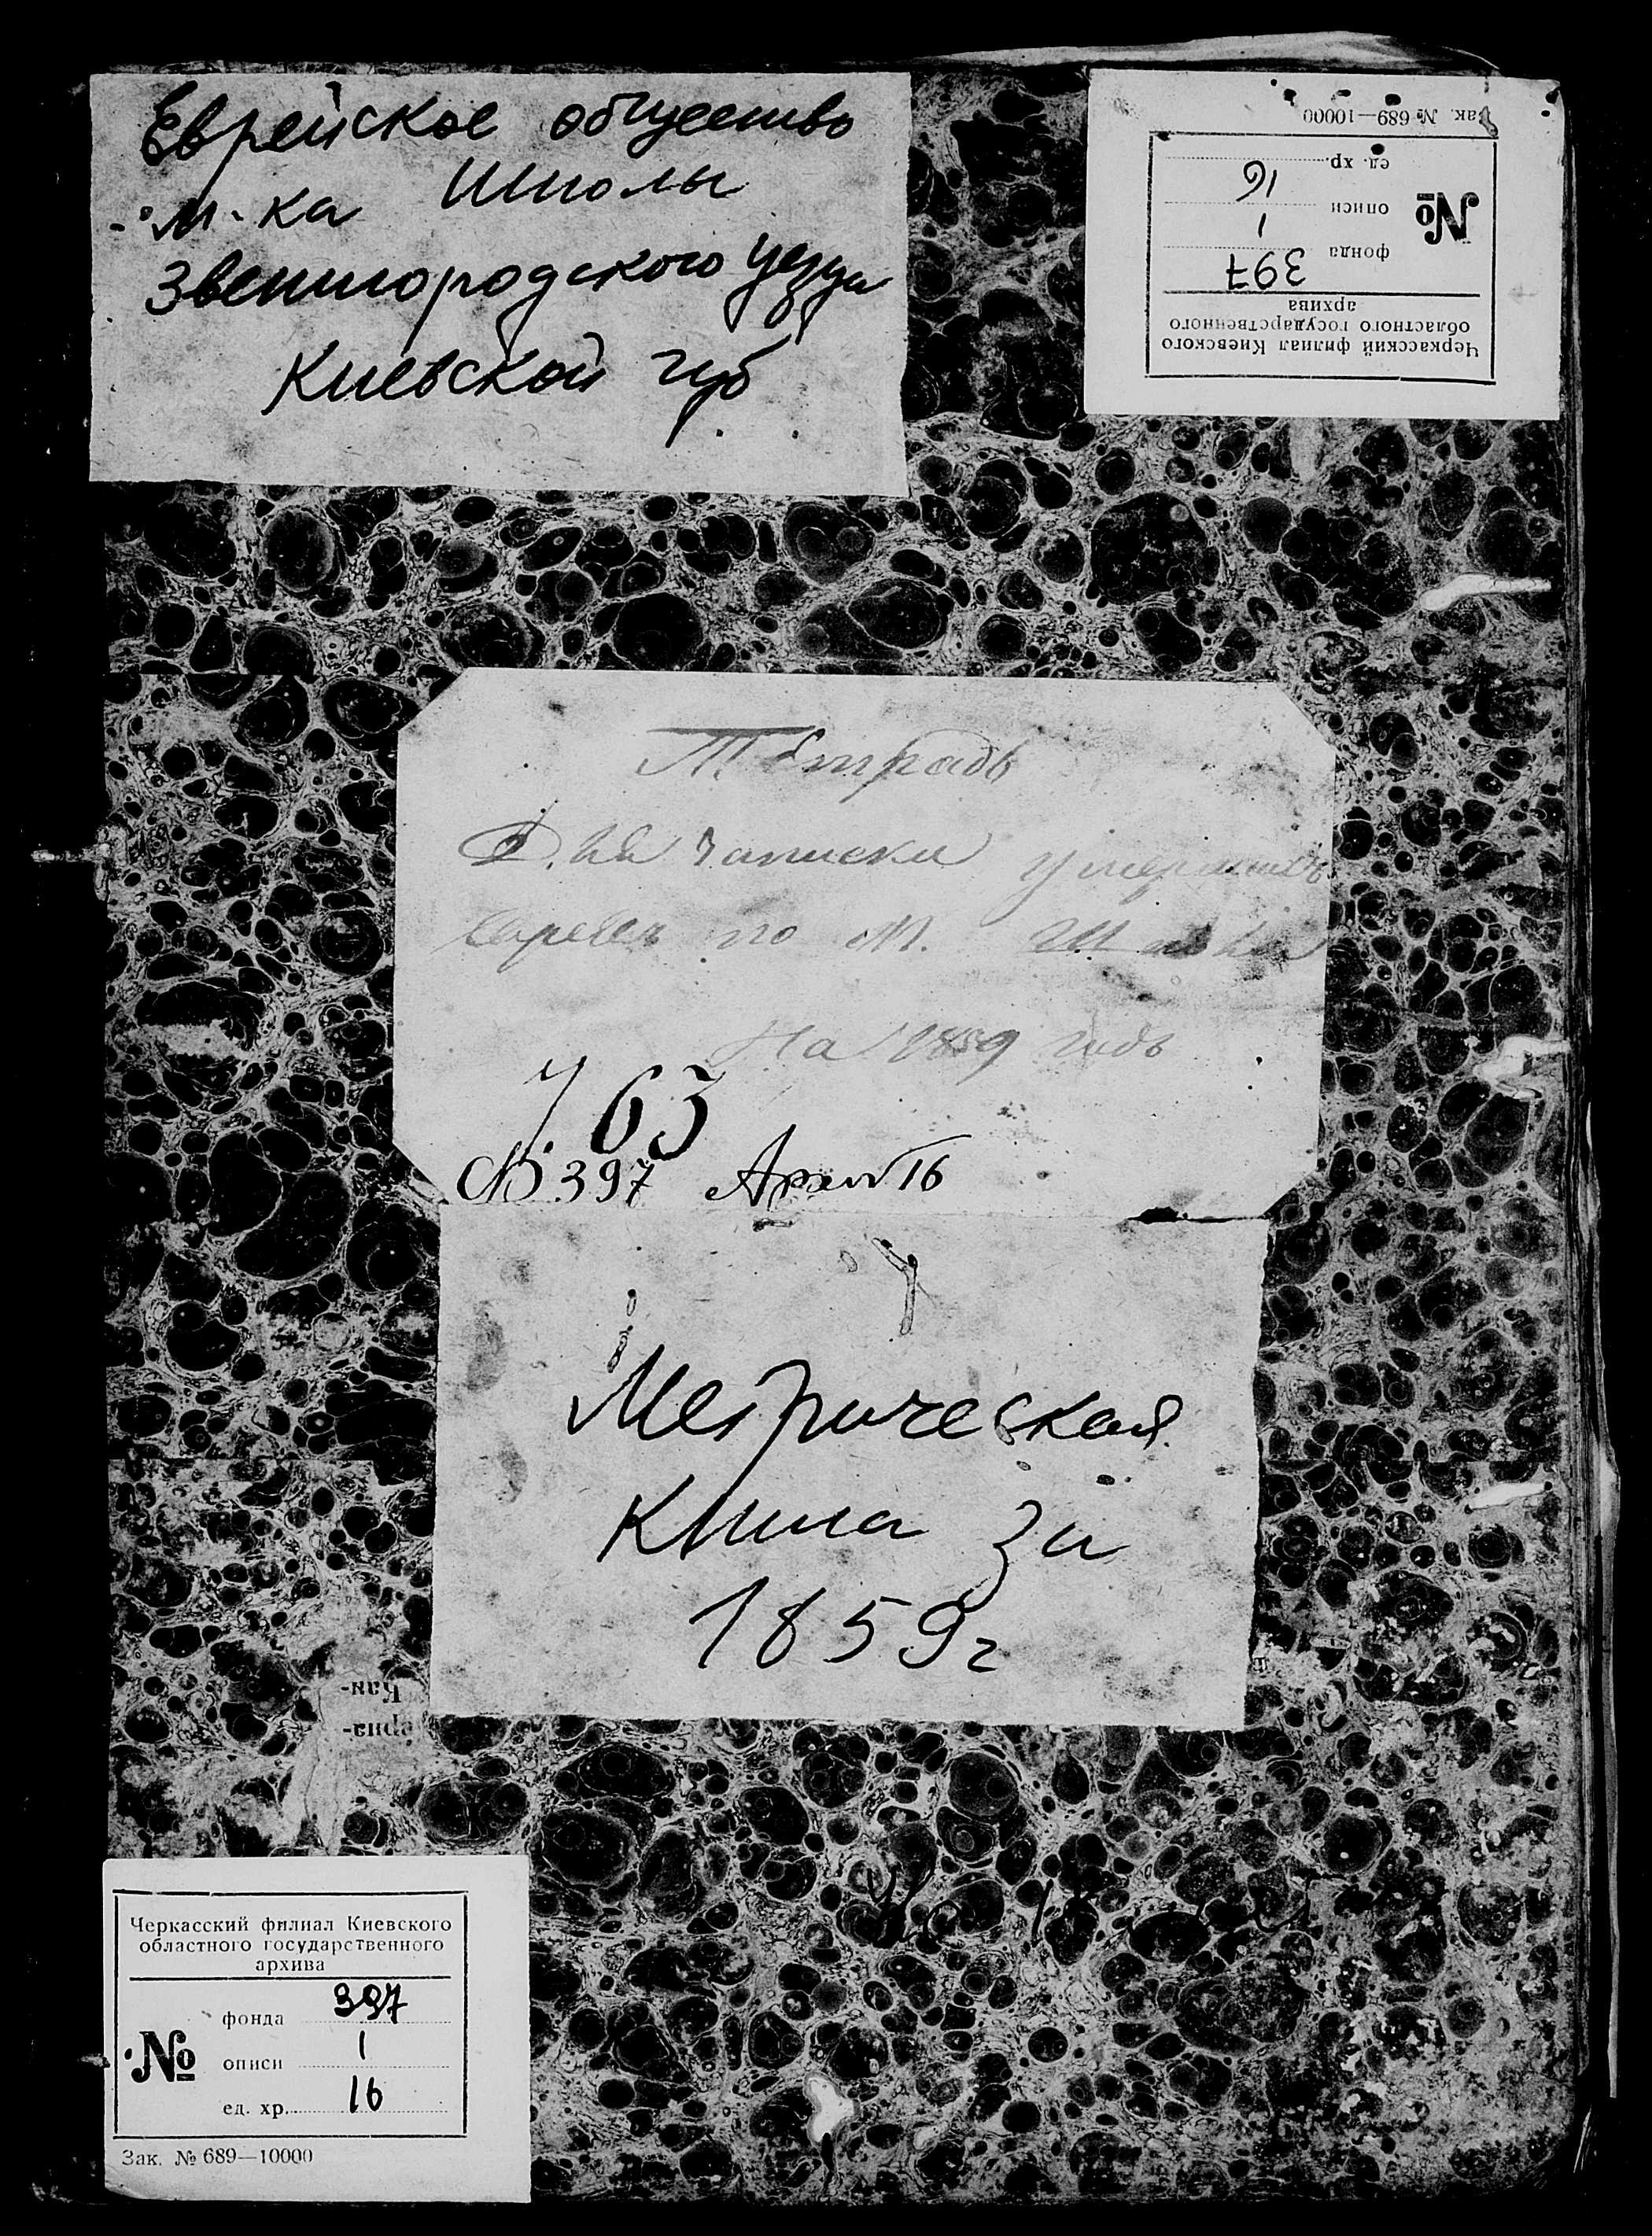 Еврейское общество
м-ка Шполы
Звенигородского уезда
Киевской губ
Зак. № 689—10000
Черкасский филиал Киевского
областного государственного
архива
№
фонда 397
описи 1
ед. хр. 16
Тетрадь
Для записки умершихъ
евреевъ по М. Шполѣ
На 1859 годъ
763
№ 397 Архив 16
Метрическая
Книга за
1859 г
Черкасский филиал Киевского
областного государственного
архива
№
фонда 397
описи 1
ед. хр. 16
Зак. № 689—10000